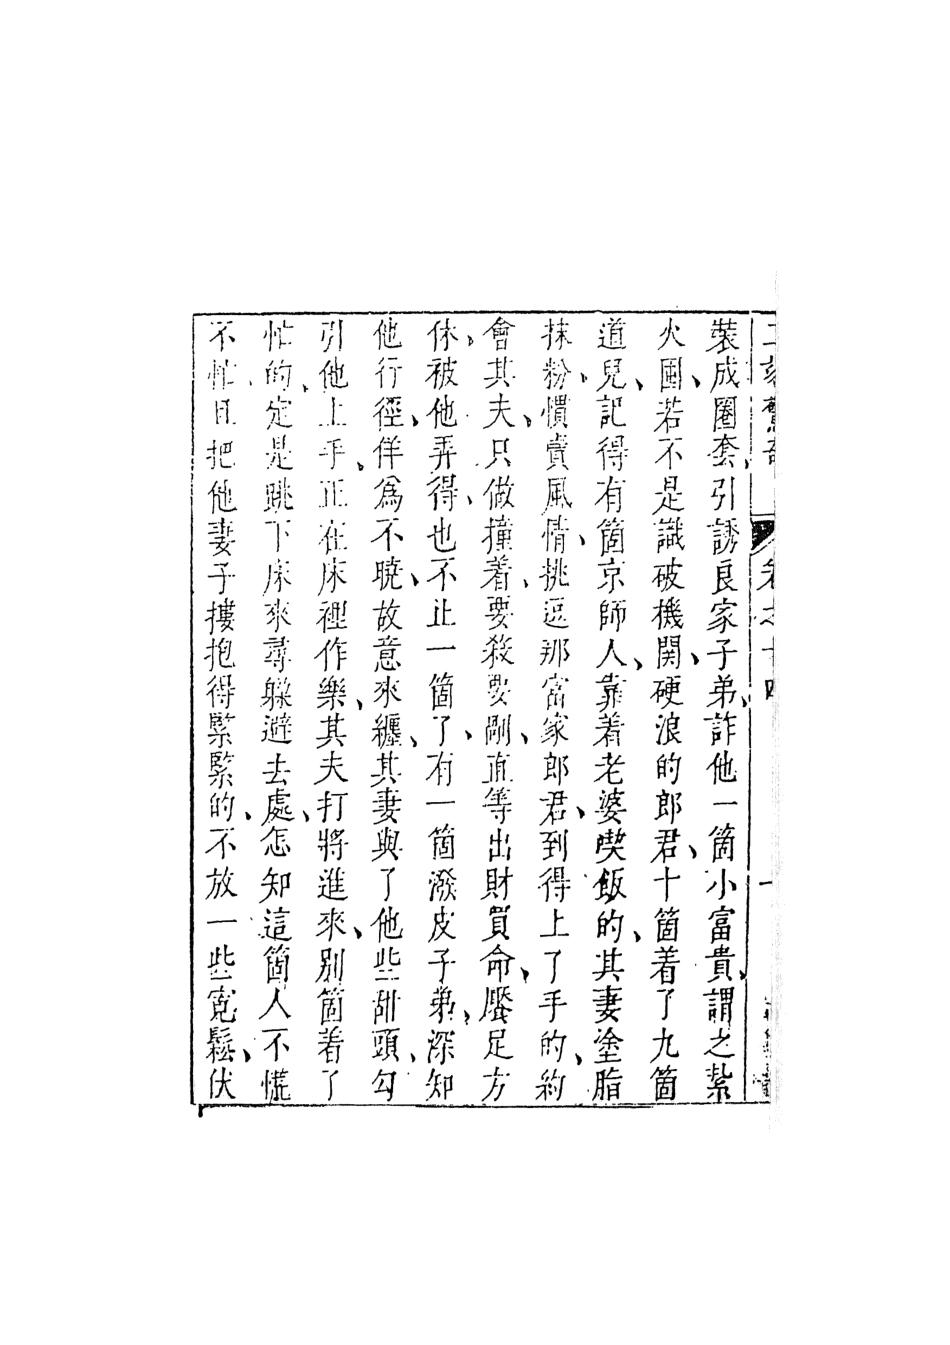 二刻驚奇　卷之十四　一
裝成圈套、引誘良家子弟、詐他一箇小富貴、謂之紥
火囤、若不是識破機関、硬浪的郎君、十箇着了九箇
道兒、記得有箇京師人、靠着老婆喫飯的、其妻塗脂
抹粉、慣賣風情、挑逗那富家郎君、到得上了手的、約
會其夫、只做撞着、要殺要剮、直等出財買命、饜足方
休、被他弄得、也不止一箇了、有一箇潑皮子弟、深知
他行徑、佯爲不曉、故意來纏、其妻與了他些甜頭、勾
引他上手、正在床裡作樂、其夫打將進來、別箇着了
忙的、定是跳下床來、尋躲避去處、怎知這箇人不慌
不忙、且把他妻子摟抱得緊緊的、不放一些寛鬆、伏